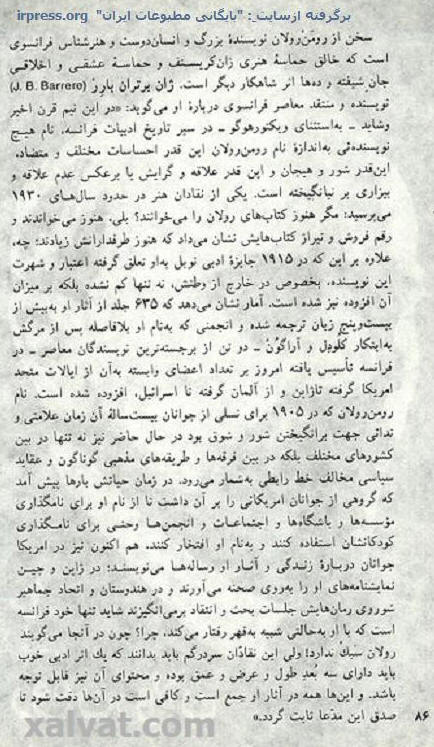 برگرفته از سایت: "بایگانی مطبوعات ایران" irpress.org
سخن از رومَن‌رولان نویسندهٔ بزرگ و انسان‌دوست و هنرشناس فرانسوی
است که خالق حماسهٔ هنری ژان‌کریستف و حماسهٔ عشقی و اخلاقی
جان شیفته و ده‌ها اثر شاهکار دیگر است. ژان برتران بارر (J. B. Barrero)
نویسنده و منتقد معاصر فرانسوی دربارهٔ او می‌گوید: «در این نیم قرن اخیر
وشاید ـ به‌استثنای ویکتورهوگو ـ در سیر تاریخ ادبیات فرانسه، نام هیچ
نویسنده‌ئی به‌اندازهٔ نام رومن‌رولان این قدر احساسات مختلف و متضاد،
این‌قدر شور و هیجان و این قدر علاقه و گرایش یا برعکس عدم علاقه و
بیزاری بر نیانگیخته است. یکی از نقادان هنر در حدود سال‌های ۱۹۳۰
می‌پرسید: مگر هنوز کتاب‌های رولان را می‌خوانند؟ بلی، هنوز می‌خواندند و
رقم فروش و تیراژ کتاب‌هایش نشان می‌داد که هنوز طرفدارانش زیادند: چه،
علاوه بر این که در ۱۹۱۵ جایزهٔ ادبی نوبل به‌او تعلق گرفته اعتبار و شهرت
این نویسنده، بخصوص در خارج از وطنش، نه تنها کم نشده بلکه بر میزان
آن افزوده نیز شده است. آمار نشان می‌دهد که ۶۳۵ جلد از آثار او به‌بیش از
بیست‌وپنج زبان ترجمه شده و انجمنی که به‌نام او بلافاصله پس از مرگش
به‌ابتکار کلودل و آراگون ـ دو تن از برجسته‌ترین نویسندگان معاصر ـ در
فرانسه تأسیس یافته امروز بر تعداد اعضای وابسته به‌آن از ایالات متحد
امریکا گرفته تاژاپن و از آلمان گرفته تا اسرائیل، افزوده شده است. نام
رومن‌رولان که در ۱۹۰۵ برای نسلی از جوانان بیست‌سالهٔ آن زمان علامتی و
ندائی جهت برانگیختن شور و شوق بود در حال حاضر نیز نه تنها در بین
کشورهای مختلف بلکه در بین فرقه‌ها و طریقه‌های مذهبی گوناگون و عقاید
سیاسی مخالف خط رابطی به‌شمار می‌رود. در زمان حیاتش بارها پیش آمد
که گروهی از جوانان امریکائی را بر آن داشت تا از نام او برای نامگذاری
مؤسسه‌ها و باشگاه‌ها و اجتماعات و انجمن‌ها وحتی برای نامگذاری
کودکانشان استفاده کنند و به‌نام او افتخار کنند. هم اکنون نیز در امریکا
جوانان دربارهٔ زندگی و آثار او رساله‌ها می‌نویسند؛ در ژاپن و چین
نمایشنامه‌های او را به‌روی صحنه می‌آورند و در هندوستان و اتحاد جماهیر
شوروی رمان‌هایش جلسات بحث و انتقاد برمی‌انگیزند شاید تنها خود فرانسه
است که با او به‌حالتی شبیه به‌قهر رفتار می‌کند، چرا؟ چون در آنجا می‌گویند
رولان سبك ندارد! ولی این نقادان سردرگم باید بدانند که یك اثر ادبی خوب
باید دارای سه بُعدِ طول و عرض و عمق بوده و محتوای آن نیز قابل توجه
باشد. و این‌ها همه در آثار او جمع است و کافی است در آن‌ها دقت شود تا
صدق این مدّعا ثابت گردد.»
۸۶
xalvat.com